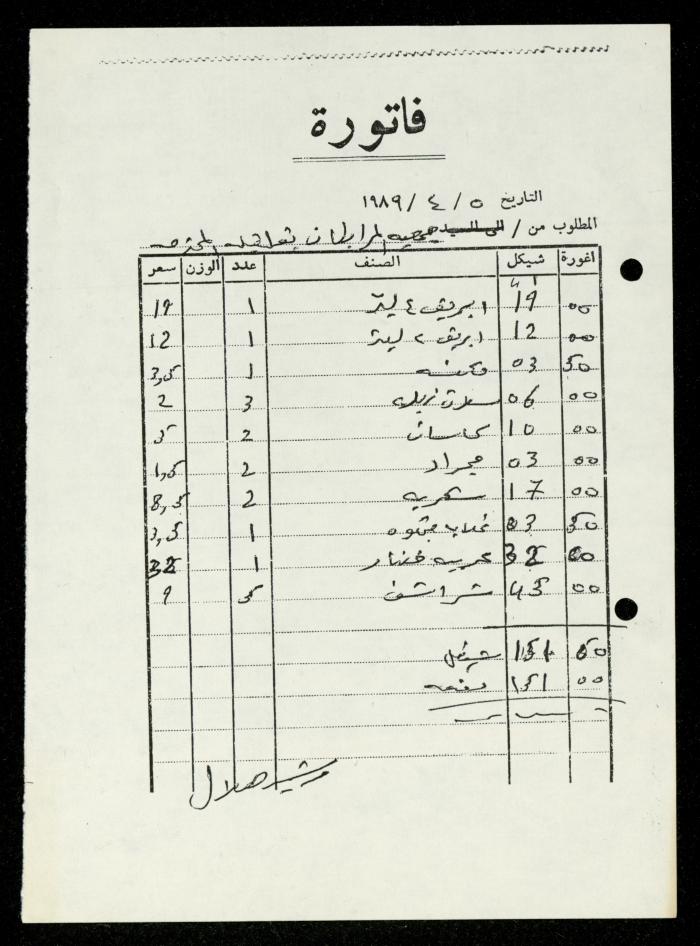 فاتورة
التاريخ ٥ / ٤ / ١٩٨٩
المطلوب من / الى السيد جمعيه المرابطات بقلقيليه المحترمه
اغورة شيكل الصنف عدد الوزن سعر
00 19 ابريق ٤ ليتر 1 19
00 12 ابريق ٢ ليتر 1 12
50 03 مكنسه 1 3,5
00 06 سلات زباله 3 2
00 10 كاسات 2 5
00 03 مجراد 2 1,5
00 17 سكريه 2 8,5
50 03 1 3,5
00 32 عربيه خضار 1 32
00 45 شراشف 5 9
50 151 شيكل
00 151 دفعه
هلال